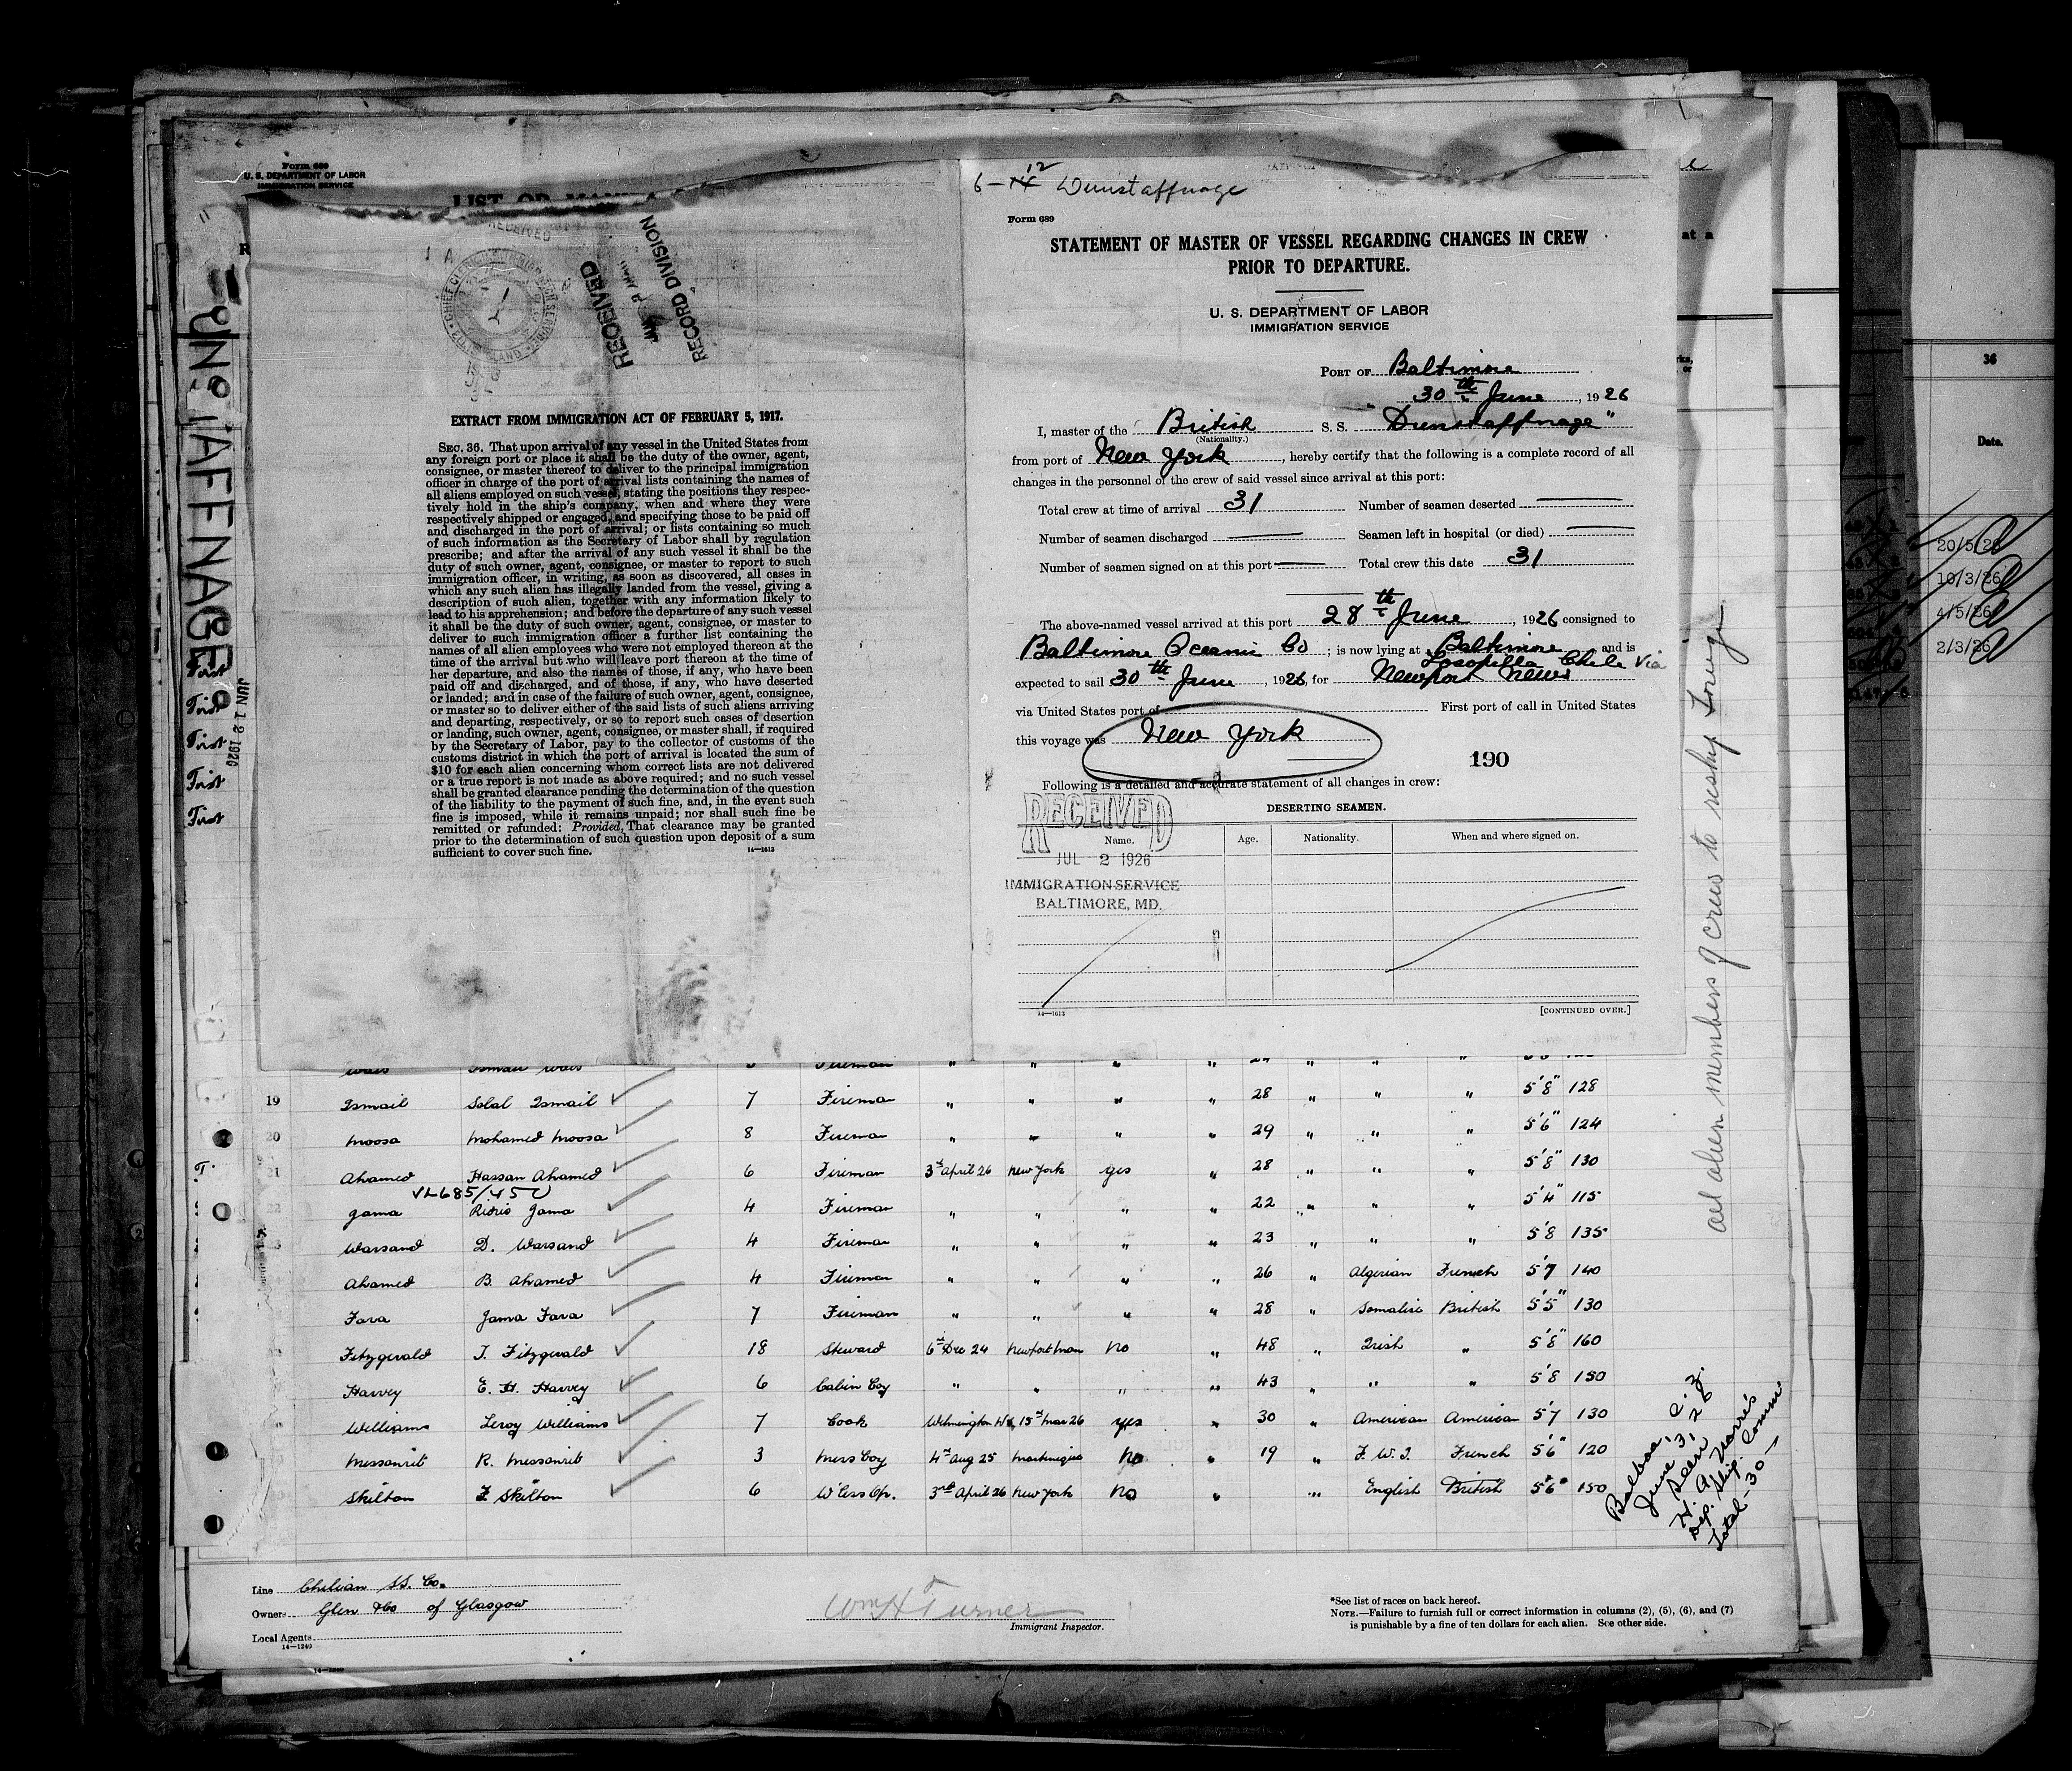 Form 689
U. S. DEPARTMENT OF LABOR
IMMIGRATION SERVICE
RECEIVED
RECORD DIVISION
EXTRACT FROM IMMIGRATION ACT OF FEBRUARY 5, 1917.
SEC. 36. That upon arrival of any vessel in the United States from
any foreign port or place it shall be the duty of the owner, agent,
consignee, or master thereof to deliver to the principal immigration
officer in charge of the port of arrival lists containing the names of
all aliens employed on such vessel, stating the positions they respec-
tively hold in the ship's company, when and where they were
respectively shipped or engaged, and specifying those to be paid off
and discharged in the port of arrival; or lists containing so much
of such information as the Secretary of Labor shall by regulation
prescribe; and after the arrival of any such vessel it shall be the
duty of such owner, agent, consignee, or master to report to such
immigration officer, in writing, as soon as discovered, all cases in
which any such alien has illegally landed from the vessel, giving a
description of such alien, together with any information likely to
lead to his apprehension; and before the departure of any such vessel
it shall be the duty of such owner, agent, consignee, or master to
deliver to such immigration officer a further list containing the
names of all alien employees who were not employed thereon at the
time of the arrival but who will leave port thereon at the time of
her departure, and also the names of those, if any, who have been
paid off and discharged, and of those, if any, who have deserted
or landed; and in case of the failure of such owner, agent, consignee,
or master so to deliver either of the said lists of such aliens arriving
and departing, respectively, or so to report such cases of desertion
or landing, such owner, agent, consignee, or master, shall, if required
by the Secretary of Labor, pay to the collector of customs of the
customs district in which the port of arrival is located the sum of
$10 for each alien concerning whom correct lists are not delivered
or a true report is not made as above required; and no such vessel
shall be granted clearance pending the determination of the question
of the liability to the payment of such fine, and, in the event such
fine is imposed, while it remains unpaid; nor shall such fine be
remitted or refunded: Provided, That clearance may be granted
prior to the determination of such question upon deposit of a sum
sufficient to cover such fine.
14—1613
6-14 12 Dunstaffnage
Form 689
STATEMENT OF MASTER OF VESSEL REGARDING CHANGES IN CREW
PRIOR TO DEPARTURE.
U. S. DEPARTMENT OF LABOR
IMMIGRATION SERVICE
PORT OF Baltimore
30th June, 1926
I, master of the British S. S. "Dunstaffnage"
(Nationality.)
from port of New York, hereby certify that the following is a complete record of all
changes in the personnel of the crew of said vessel since arrival at this port:
Total crew at time of arrival 31 Number of seamen deserted
Number of seamen discharged Seamen left in hospital (or died)
Number of seamen signed on at this port Total crew this date 31
The above-named vessel arrived at this port 28th June, 1926 consigned to
Baltimore Oceanic Co; is now lying at Baltimore and is
Chile Via
expected to sail 30th June, 1926, for Newport News
via United States port of First port of call in United States
this voyage was New York
190
Following is a detailed and accurate statement of all changes in crew:
DESERTING SEAMEN.
Name. Age. Nationality. When and where signed on.
RECEIVED
JUL 2 1926
IMMIGRATION SERVICE
BALTIMORE, MD.
14—1613 [CONTINUED OVER.]
all alien members of crew to reship foreign.
JUN 12 1926
First
First
First
First
First
36
Date.
20/5/26
10/3/26
4/5/26
2/3/26
19 Ismail Solal Ismail 7 Fireman " " " " 28 " " " 5'8" 128
20 Moosa Mohamed Moosa 8 Fireman " " " " 29 " " " 5'6" 124
21 Ahamed Hassan Ahamed 6 Fireman 3rd April 26 New York yes " 28 " " " 5'8" 130
22 Gama Gama 4 Fireman " " " " 22 " " " 5'4" 115
Warsand D. Warsand 4 Fireman " " " " 23 " " " 5'8 135
Ahamed B. Ahamed 4 Fireman " " " " 26 " Algerian French 5'7 140
Fara Jama Fara 7 Fireman " " " " 28 " Somalise British 5'5" 130
Fitzgerald T. Fitzgerald 18 Steward 6th Dec 24 Newport Mon no " 48 " Irish " 5'8" 160
Harvey E. H. Harvey 6 Cabin Boy " " " " 43 " " " 5'8 150
Williams Leroy Williams 7 Cook Wilmington 15th Mar 26 yes " 30 " American American 5'7 130
Messanrit R. Messanrit 3 Mess boy 4th Aug 25 Martinique No " 19 " F. W. I. French 5'6" 120
Skilton F. Skilton 6 W'less Op. 3rd April 26 New York No " " English British 5'6" 150
Balboa, C. Z.
June 3, 26
Seen
H. A. Norris
Dep. Ship. Comm.
Total - 30 -
Line Chilian SS. Co.
Owners Glen & Co of Glasgow
Local Agents
14—1240
Wm H Turner
Immigrant Inspector.
*See list of races on back hereof.
NOTE.—Failure to furnish full or correct information in columns (2), (5), (6), and (7)
is punishable by a fine of ten dollars for each alien. See other side.